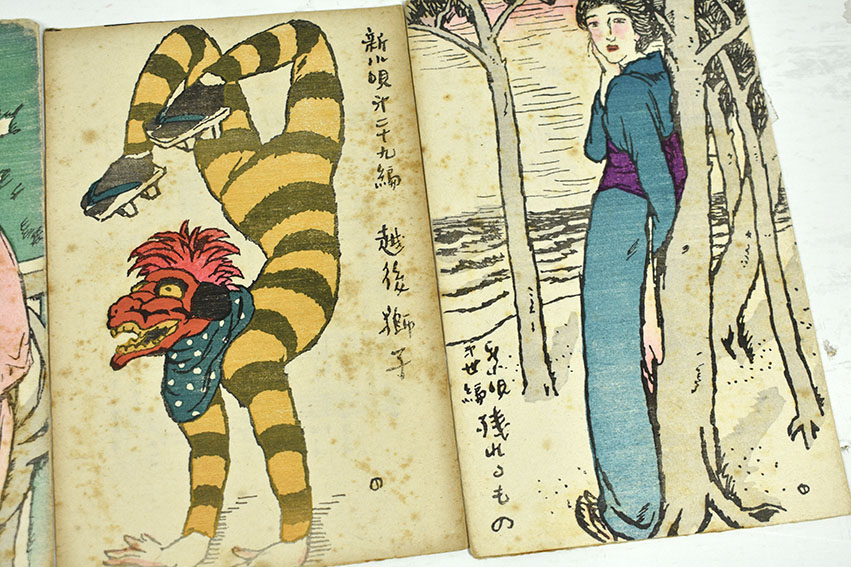 新小唄第二十九編
越後獅子
新小唄
第卅編
残れるもの